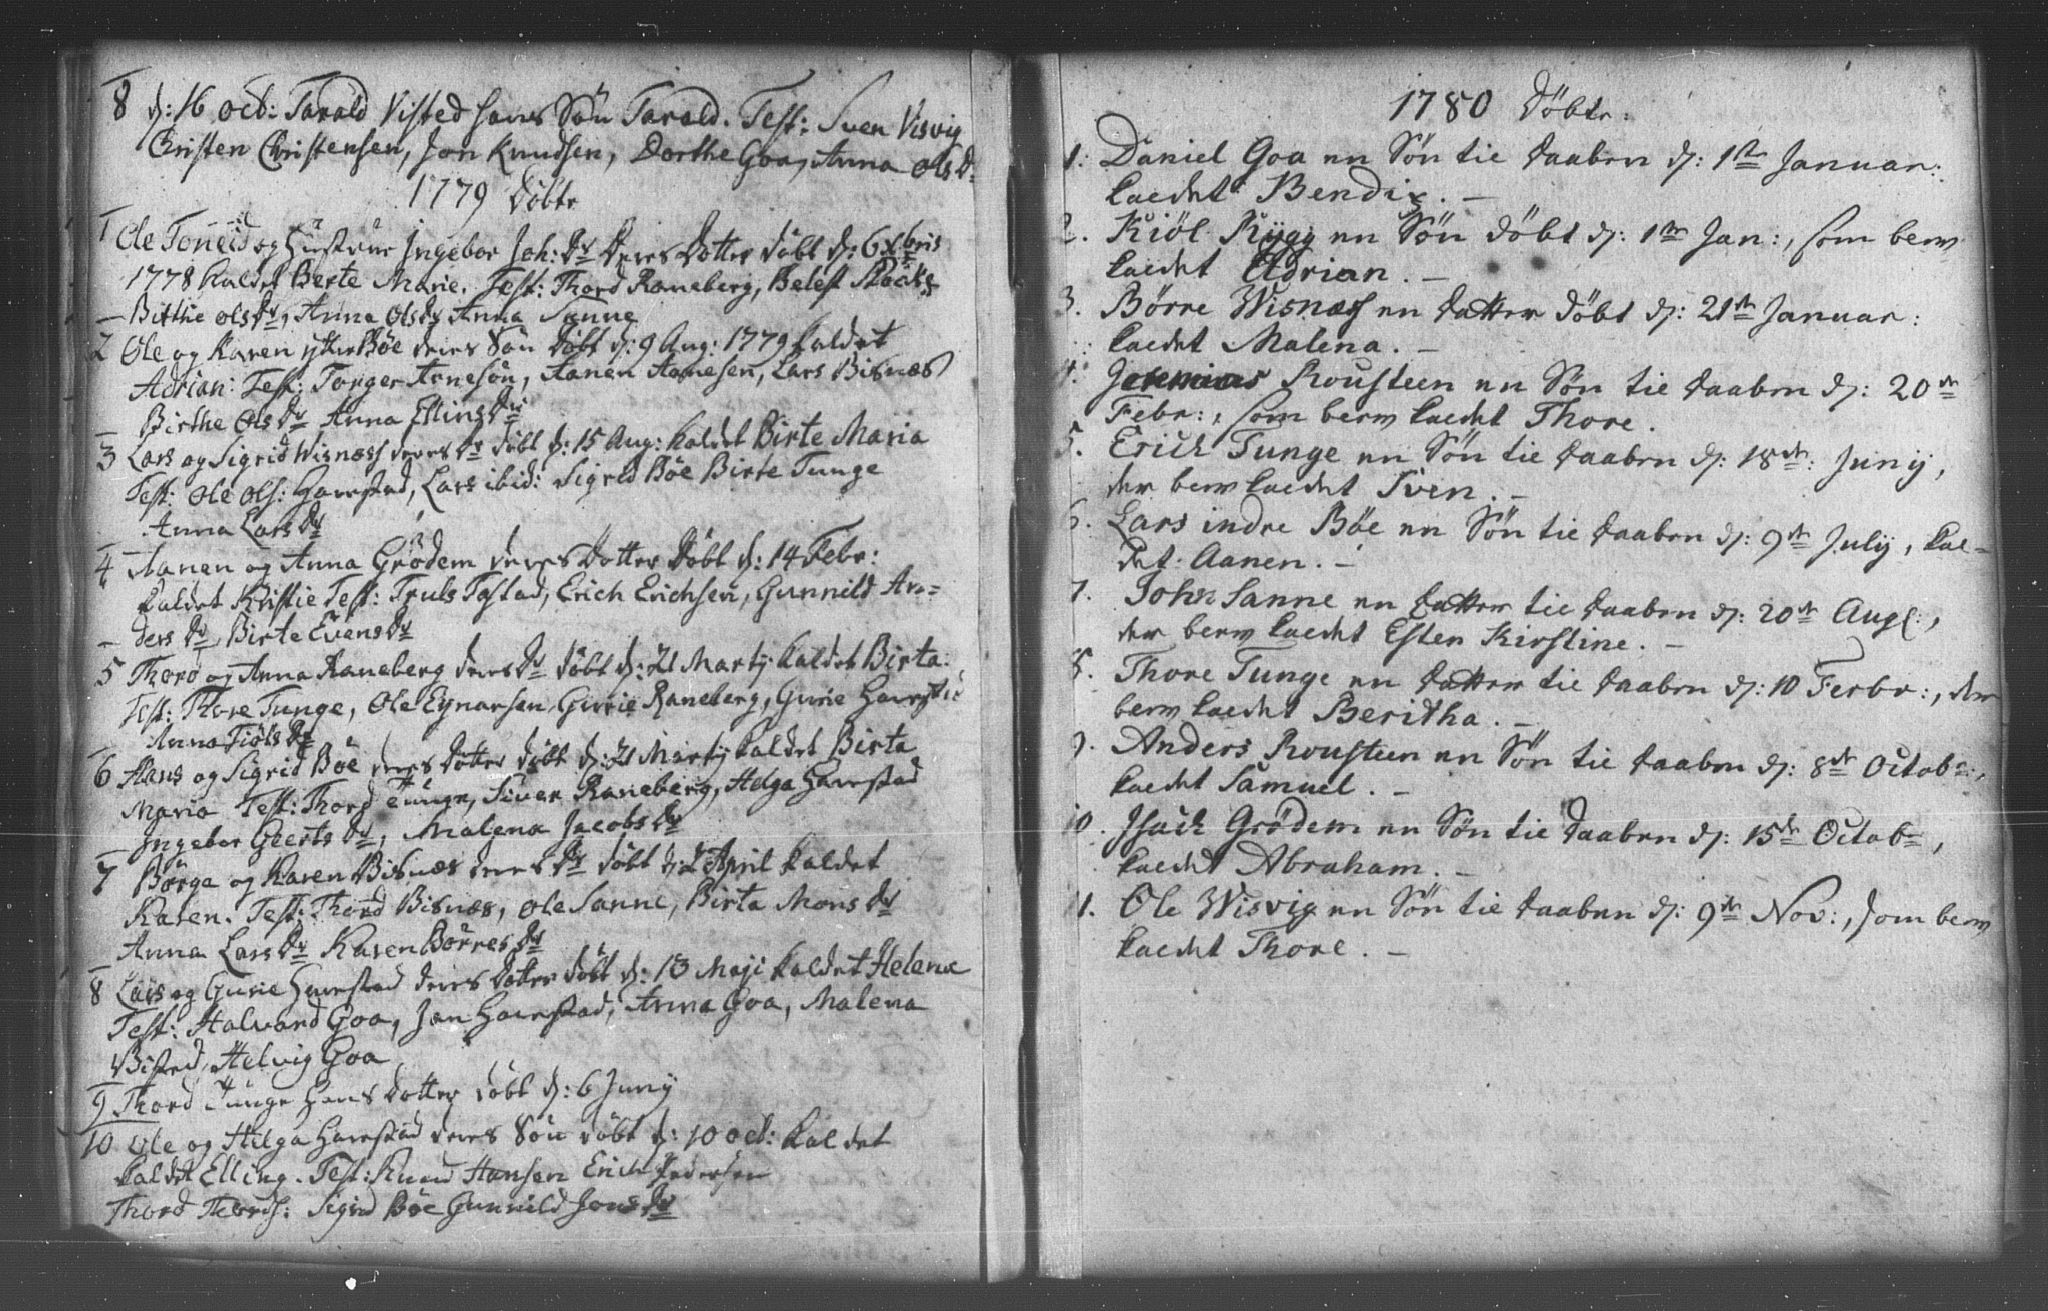 8 d: 16 oct: Tarald Visted hans Sön Tarald. Test: Sven Visvig
Christen Christensen, Jon Knudsen, Dorthe Goa, Anna Ols D:
1779 Döbte
1 Ole Toneid og Hustrue Ingebor Joh: Dr Deres Dotter döbt d: 6 Xbris
1778 kaldet Berte Marie. Test: Thord Raneberg,
Birthe Ols Dr, Anna Ols Dr Anna Sanne
2 Ole og Karen ytre Böe deres Sön döbt d: 9 Aug: 1779 kaldet
Adrian: Test: Torger Arnesön, Aanen Aanesen, Lars Bisnæs
Birthe Ols Dr Anna Ellins Dr
3 Lars og Sigrid Wisnæss deres Dr döbt d: 15 Aug: kaldet Birte Maria
Test: Ole Ols: Harestad, Lars ibid: Sigrid Böe Birte Tunge
Anna Lars Dr
4 Aanen og Anna Grödem deres Dotter döbt d: 14 Febr:
kaldet Kristie Test: Truls Tastad, Erich Erichsen, Gunnild An-
ders Dr, Birte Evens Dr
5 Thord og Anna Raneberg deres Dr döbt d: 21 Martij kaldet Birta:
Test: Thore Tunge, Ole Eynarsen, Gurie Raneberg, Gurie Harestad
Anna Tiöls Dr
6 Hans og Sigrid Böe deres Dotter döbt d: 21 Martij kaldet Birta
Maria Test: Thord Tunge, Siver Raneberg, Helga Harestad
Ingebor Geerts Dr, Malena Jacobs Dr
7 Börge og Karen Bisnæs deres Dr döbt d: 2 April kaldet
Karen. Test: Thord Bisnæs, Ole Sanne, Birta Mons Dr
Anna Lars Dr Karen Börres Dr
8 Lars og Gurie Harestad deres Dotter döbt d: 13 Maji kaldet Helena
Test: Halvard Goa, Jan Harestad, Anna Goa, Malena
Bisted, Helvig Goa
9 Thord Tunge Hans Dotter döbt d: 6 Junij
10 Ole og Helga Harestad deres Sön döbt d: 10 oct: kaldet
kaldet Elling. Test: Knud Hansen Erich Pedersen
Thord Thords: Sigrid Böe Gunnild Jons Dr
1780 Döbte:
1. Daniel Goa en Søn til daaben d: 1ste Januar:
kaldet Bendix. –
2. Kiöl Rygg en Søn döbt d: 1ste Jan:, som blew
kaldet Adrian. –
3. Børre Wisnæs en datter døbt d: 21de Januar:
kaldet Malena. –
4. Jeremias Rousteen en Søn til daaben d: 20de
Febr:, som blew kaldet Thore.
5. Erick Tunge en Søn til daaben d: 18de: Junij,
der blew kaldet Sven. –
6. Lars indre Bøe en Søn til daaben d: 9de July, kal-
det: Aanen. –
7. John Sanne en datter til daaben d: 20de Augs:,
der blew kaldet Esten Kirstine. –
8. Thore Tunge en datter til daaben d: 10 Ferbr:, der
blew kaldet Beritha. –
9. Anders Rousteen en Søn til daaben d: 8de Octobr:,
kaldet Samuel. –
10. Isack Grødem en Søn til daaben d: 15de Octobr,
kaldet Abraham. –
11. Ole Wisvig en Søn til daaben d: 9de Nov:, som blew
kaldet Thore. –